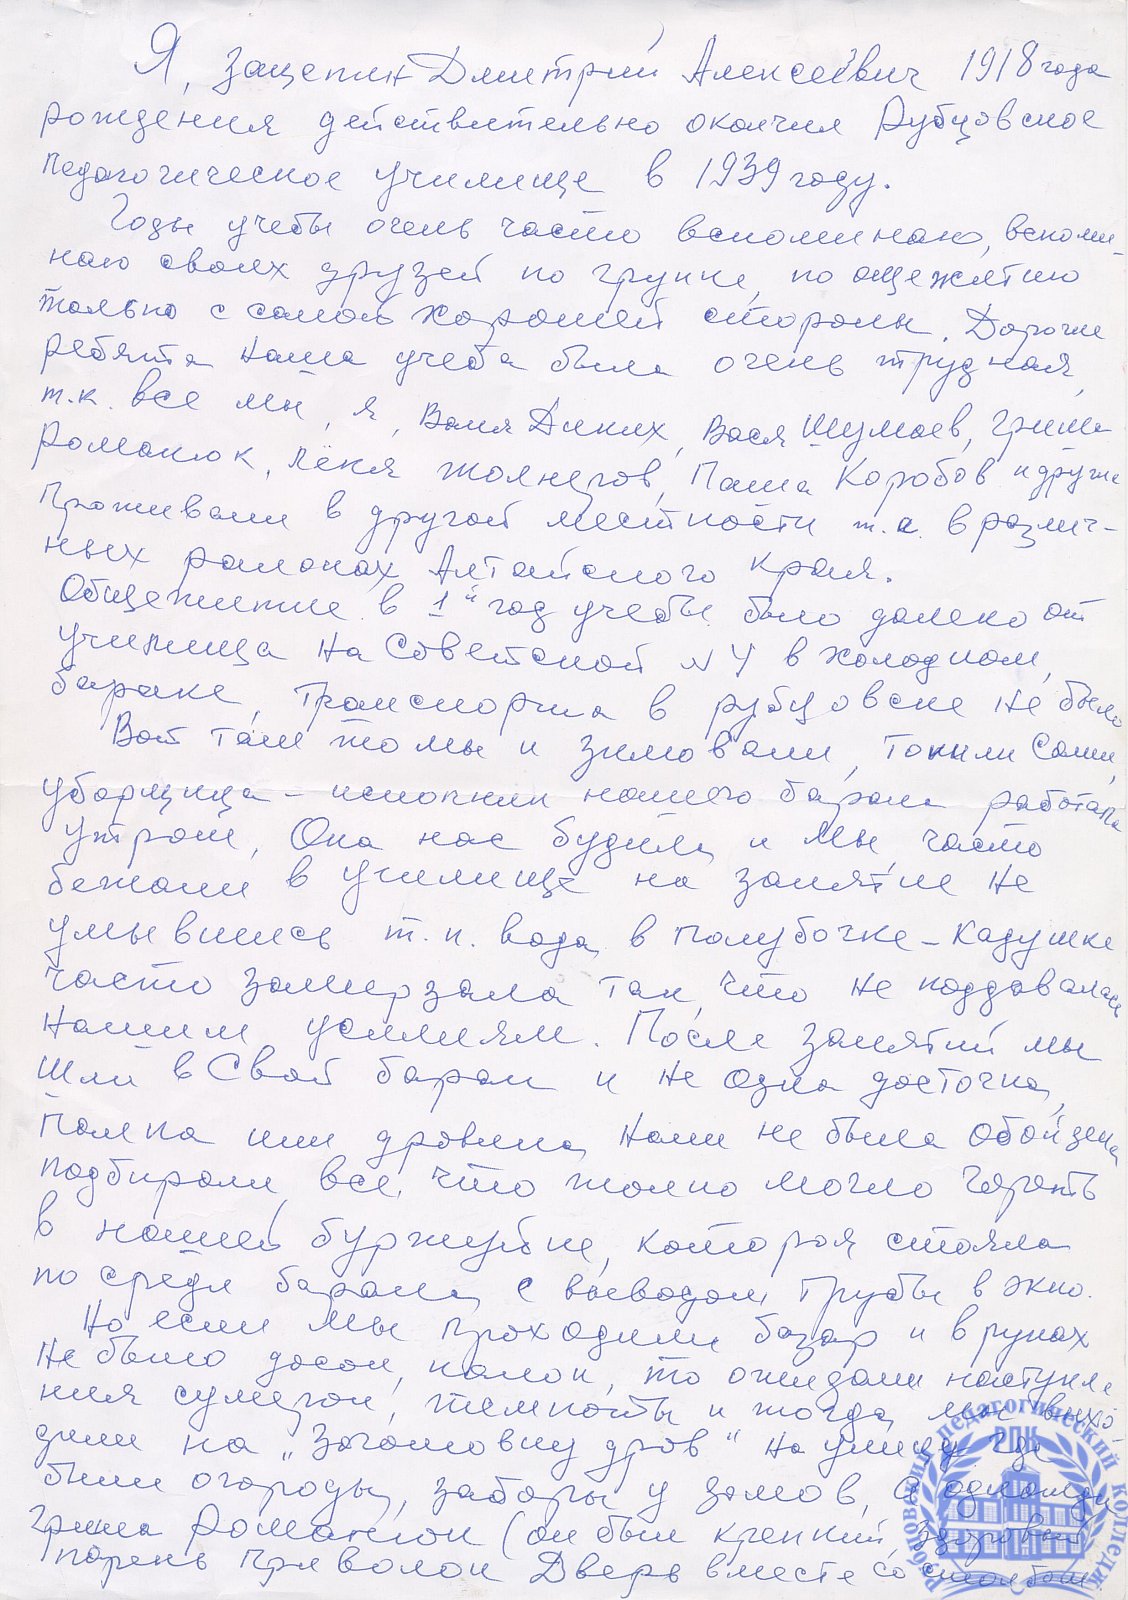 Я, Защепин Дмитрий Алексеевич 1918 года
рождения действительно окончил Рубцовское
педагогическое училище в 1939 году.
Годы учебы очень часто вспоминаю, вспоми-
наю своих друзей по группе, по общежитию
только с самой хорошей стороны. Дорогие
ребята наша учеба была очень трудная,
т.к. все мы, я, Ваня Диких, Вася Шумаев, Гриша
Романюк, Лёня Жолнеров, Паша Коробов и другие
проживали в другой местности т.е. в различ-
ных районах Алтайского края.
Общежитие в 1й год учебы было далеко от
училища на Советской N 4 в холодном
бараке, транспорта в рубцовске не было
Вот там то мы и зимовали, топили сами,
уборщица - истопник нашего барака работала
утром, Она нас будила и мы часто
бежали в училище на занятие не
умывшись т.к. вода в полубочке - кадушке
часто замерзала так, что не поддавалась
нашим усилиям. После занятий мы
шли в свой барак и не одна досточка,
палка или дровина нами не была обойдена
подбирали, все, что только могло гореть
в нашей буржуйке, которая стояла
по среди барака с выводом трубы в окно.
Но если мы проходили базар и в руках
не было досок, палок, то ожидали наступле
ния сумерок, темноты и тогда мы выхо-
дили на "Заготовку дров" на улицу где
были огороды, заборы у домов, а однажды
Гриша Романюк (он был крепкий, здоровый
парень приволок дверь вместе со столбом
Рубцовский педагогический колледж
РПК